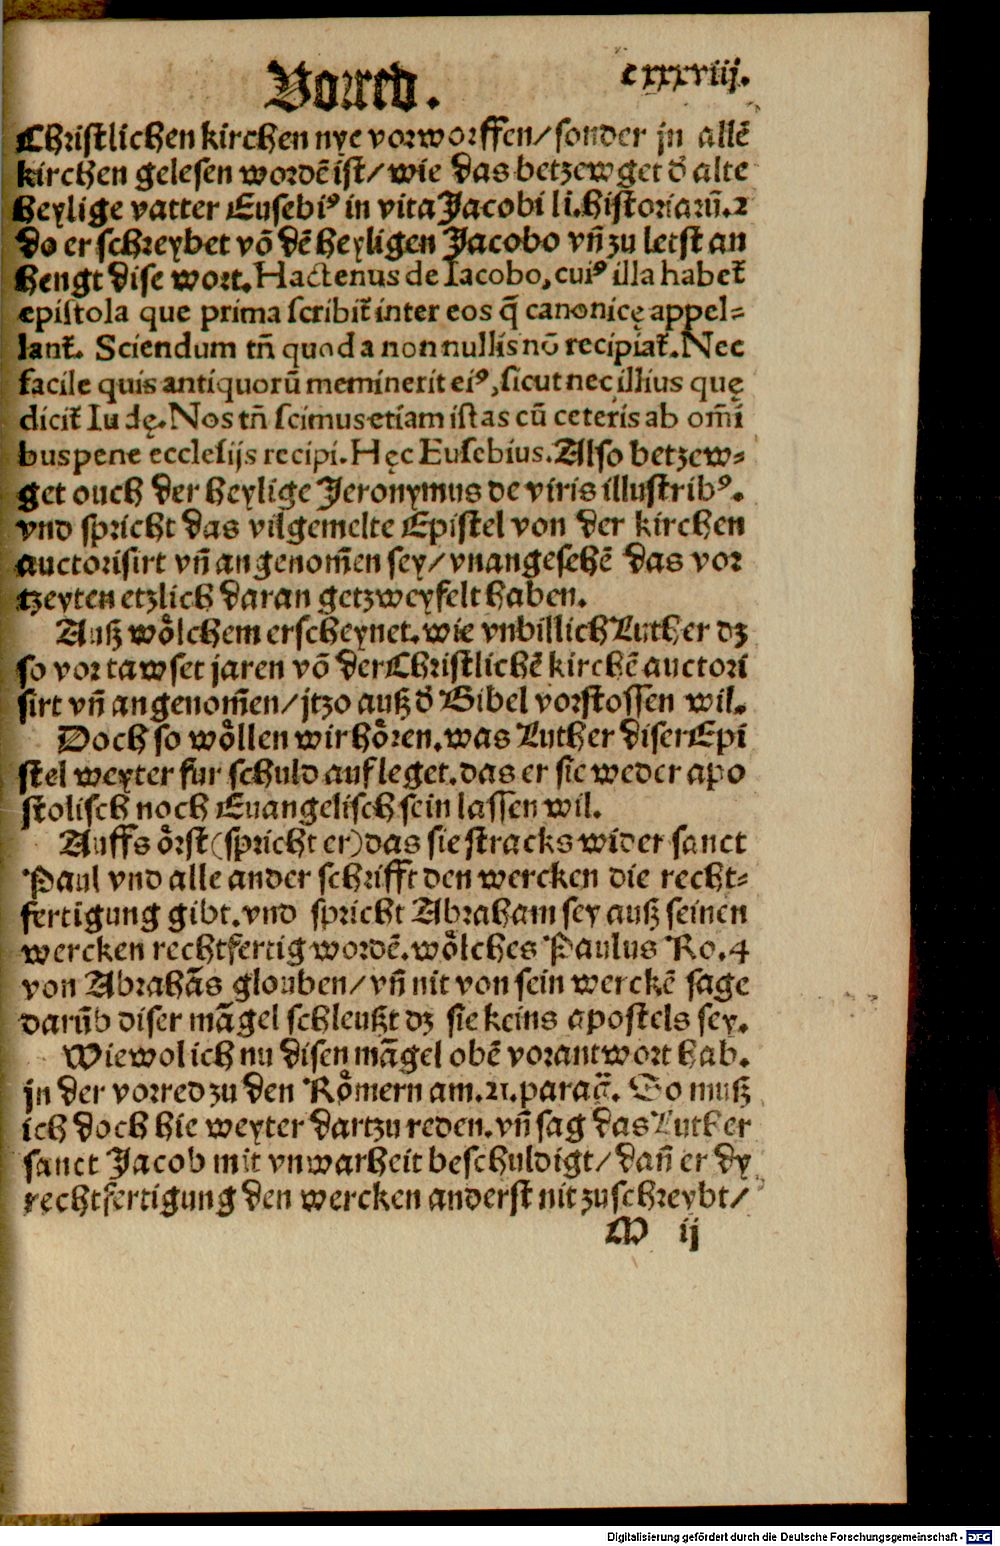 Vorred.
cxxxviij.
Christlichen kirchen nye vorworffen/sonder jn allē
kirchen gelesen wordē ist/wie das betzewget ď alte
heylige vatter Eusebiꝰ in vita Jacobi li.historiarū.2
do er schreybet vō dē heyligen Jacobo vñ zu letst an
hengt dise wort. Hactenus de Iacobo, cuiꝰ illa habet̃
epistola que prima scribit̃ inter eos q̄ canonicę appel-
lant̃. Sciendum tñ quod a nonnullis nō recipiat̃. Nec
facile quis antiquorū meminerit eiꝰ, sicut nec illius quę
dicit̃ Iudę. Nos tñ scimus etiam istas cū ceteris ab om̄i
bus pene ecclesijs recipi. Hęc Eusebius. Also betzew-
get ouch der heylige Jeronymus de viris illustribꝰ.
vnd spricht das vilgemelte Epistel von der kirchen
auctorisirt vñ angenom̄en sey/vnangesehē das vor
tzeyten etzlich daran getzweyfelt haben.
Auß wölchem erscheynet. wie vnbillich Luther dz
so vor tawset jaren vō der Christlichē kirchē auctori
sirt vñ angenom̄en/jtzo auß ď Bibel vorstossen wil.
Doch so wöllen wir hören. was Luther diser Epi
stel weyter fur schuld aufleget. das er sie weder apo
stolisch noch Euangelisch sein lassen wil.
Auffs örst(spricht er)das sie stracks wider sanct
Paul vnd alle ander schrifft den wercken die recht-
fertigung gibt. vnd spricht Abraham sey auß seinen
wercken rechtfertig wordē. wölches Paulus Ro.4
von Abrahās glouben/vñ nit von sein werckē sage
darūb diser māgel schleußt dz sie keins apostels sey.
Wiewol ich nu disen māgel obē vorantwort hab.
jn der vorred zu den Römern am.21.paraḡ. So muß
ich doch hie weyter dartzu reden. vñ sag das Luther
sanct Jacob mit vnwarheit beschuldigt/dañ er dy
rechtfertigung den wercken anderst nit zuschreybt/
M ij
Digitalisierung gefördert durch die Deutsche Forschungsgemeinschaft - DFG